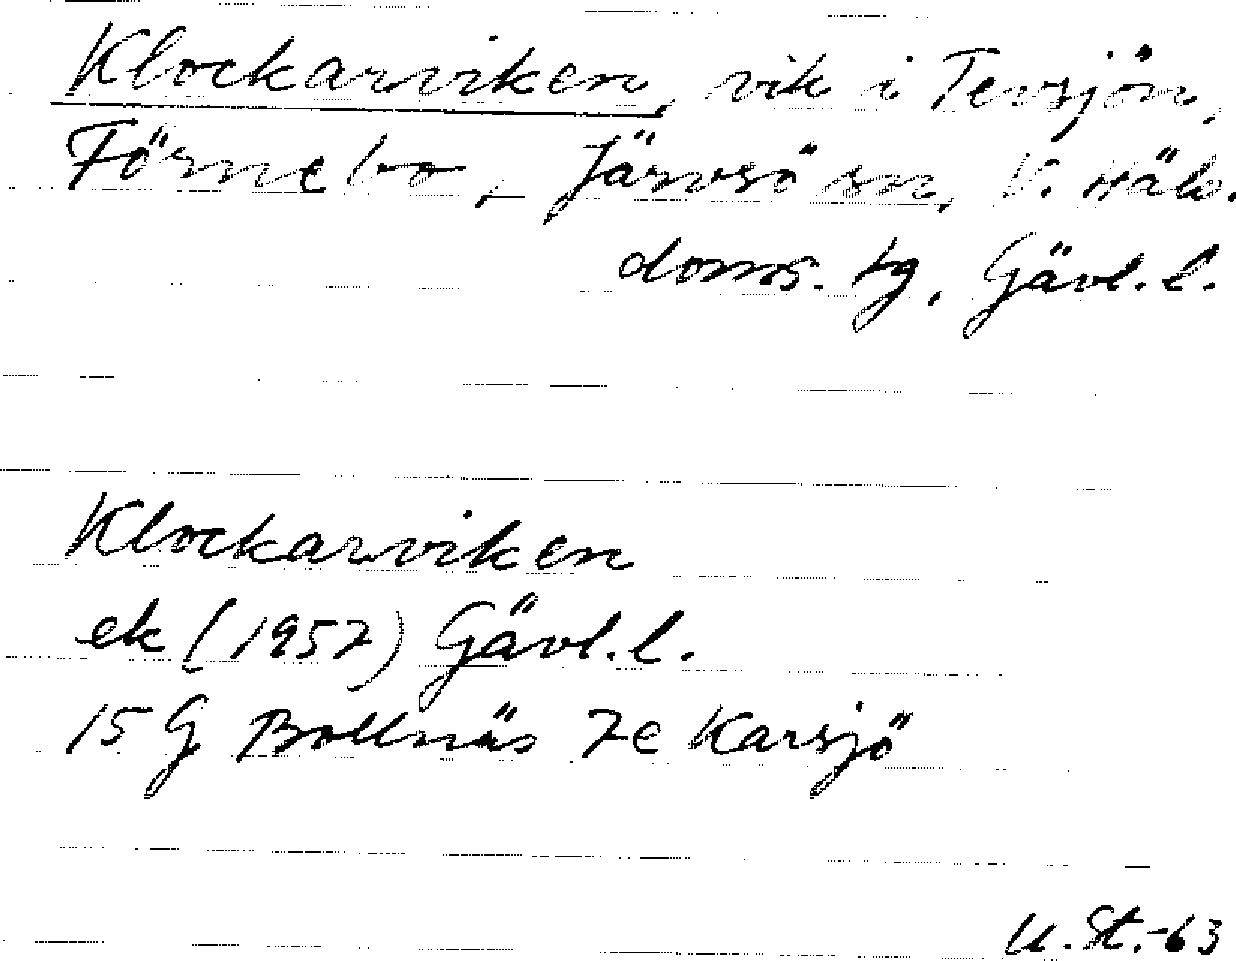 Klockarviken, vik i Tevsjön,
Förnebo, Järvsö sn, V. Häls.
doms. tg, Gävl.l.
Klockarviken
ek (1957) Gävl.l.
15 G Bollnäs 7e Karsjö
U.St.-63